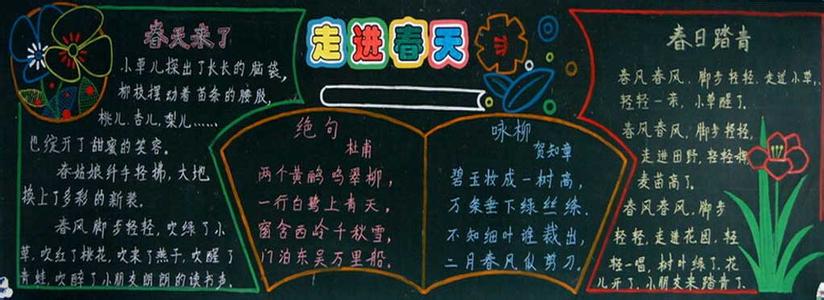 走进春天
春天来了
小草儿探出了长长的脑袋,
柳枝摆动着苗条的腰肢,
桃儿、杏儿、梨儿……
也绽开了甜蜜的笑容。
春姑娘纤手轻拂,大地
换上了多彩的新装。
春风脚步轻轻,吹绿了小
草,吹红了桃花,吹来了燕子,吹醒了
青蛙,吹醉了小朋友朗朗的读书声。
绝句
杜甫
两个黄鹂鸣翠柳,
一行白鹭上青天。
窗含西岭千秋雪,
门泊东吴万里船。
咏柳
贺知章
碧玉妆成一树高,
万条垂下绿丝绦。
不知细叶谁裁出,
二月春风似剪刀。
春日踏青
春风春风,脚步轻轻,走进小草,
轻轻一亲,小草醒了。
春风春风,脚步轻轻,
走进田野,轻轻一
麦苗高了。
春风春风,脚步
轻轻,走进花园,轻
轻一唱,树叶绿了,花
儿开了,小朋友来踏青了。